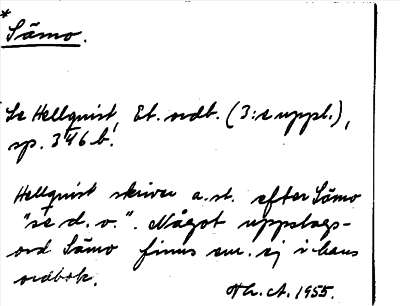 *
Sämo.
Se Hellquist, Et. ordb. (3:e uppl.),
sp. 346 b.
Hellquist skriver a.st. efter Sämo
"se d. o.". Något uppslags-
ord Sämo finns em. ej i hans
ordbok.
Th. A. 1955.